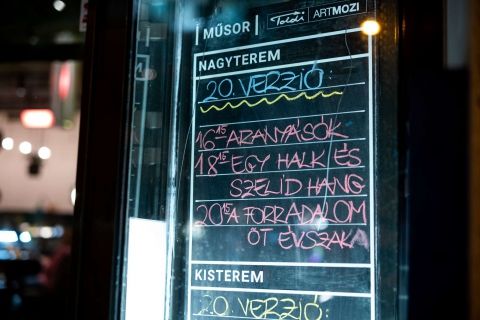 MŰSOR | Toldi ARTMOZI
NAGYTEREM
20. VERZIÓ:
16 15 ARANYÁSÓK
18 15 EGY HALK ÉS
SZELÍD HANG
20 15 A FORRADALOM
ÖT ÉVSZAKA
KISTEREM
20. VERZIÓ: